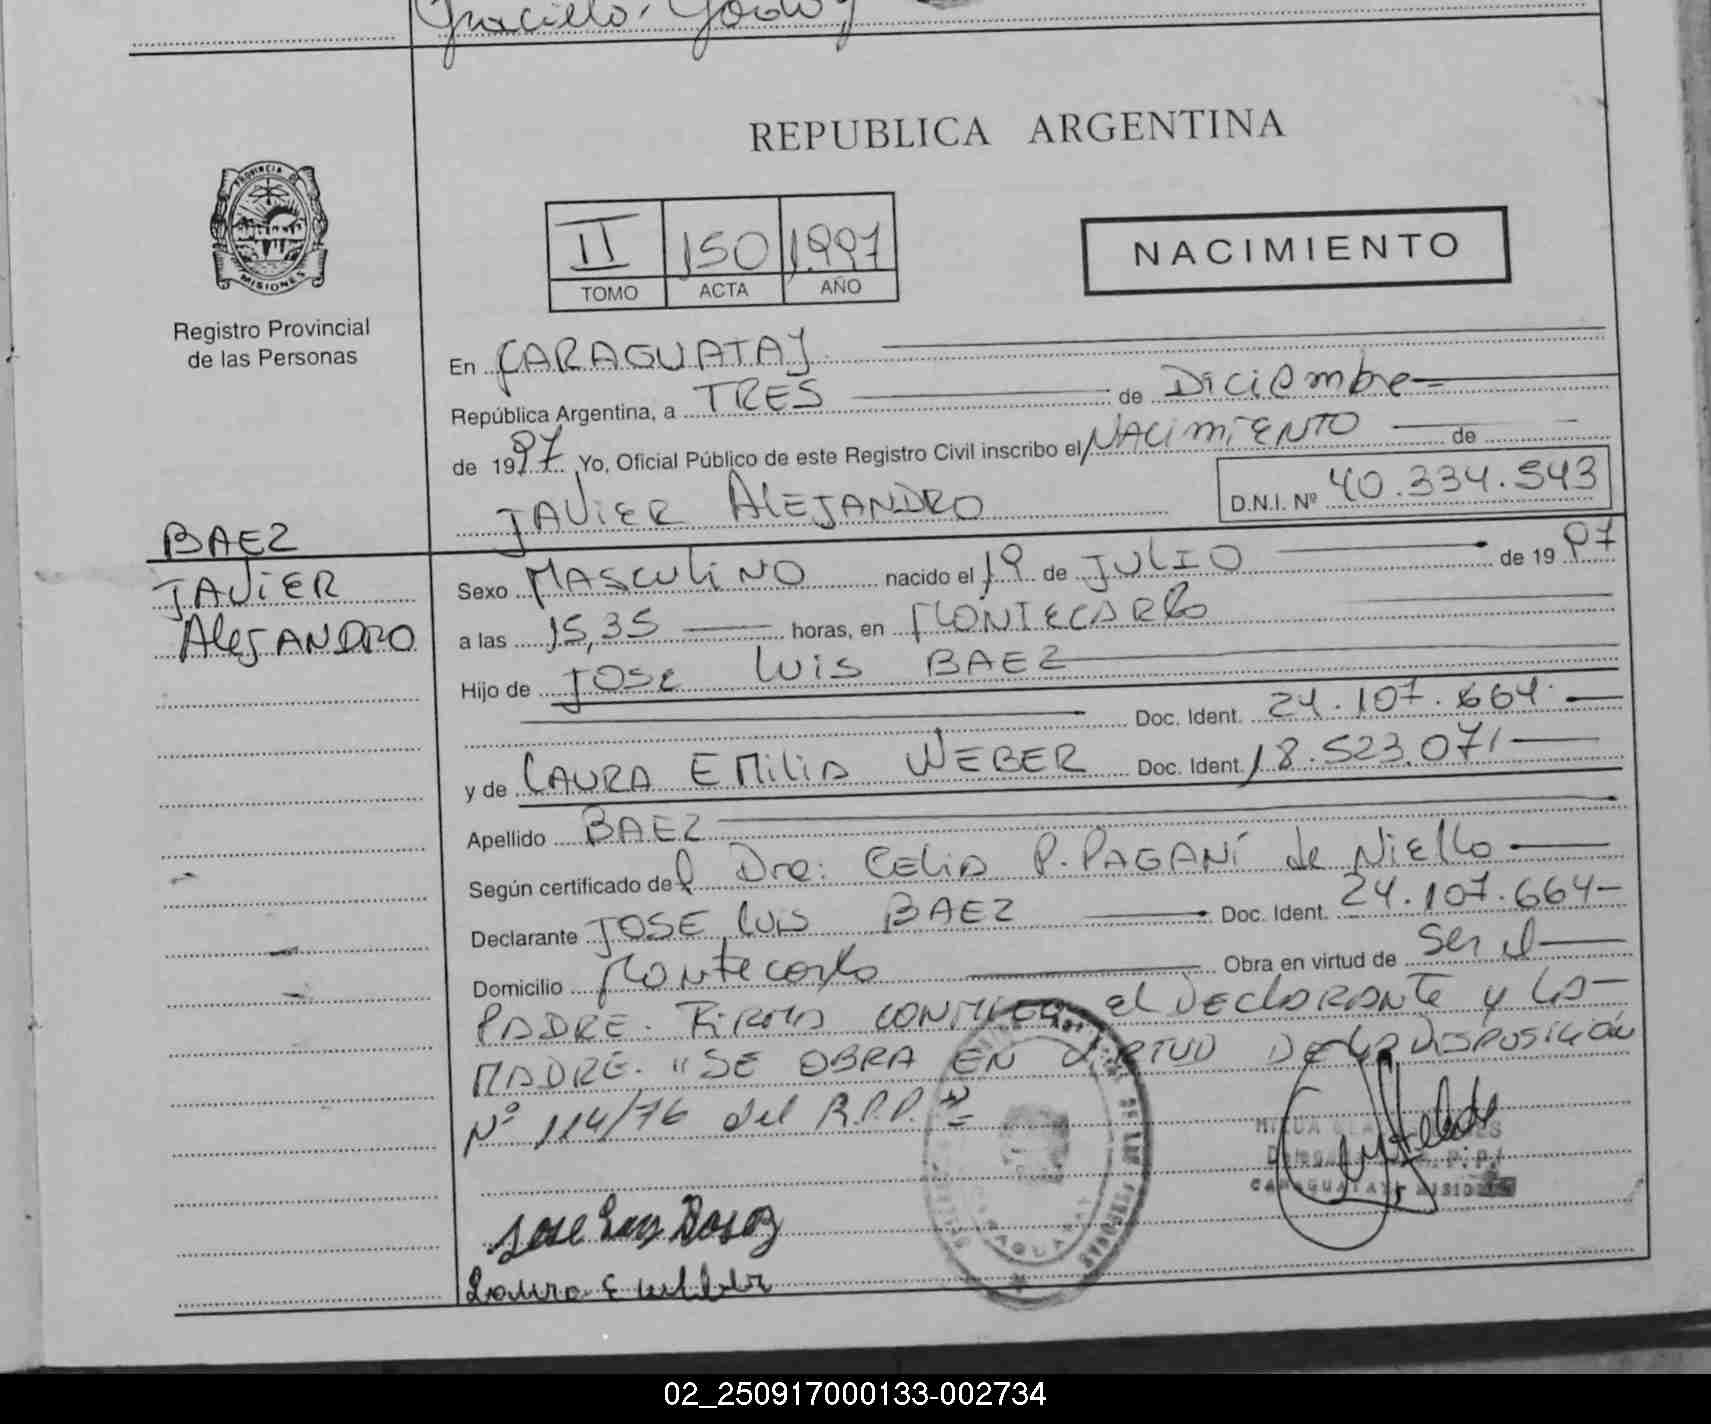 Graciela Godoy
REPUBLICA ARGENTINA
PROVINCIA DE
MISIONES
Registro Provincial
de las Personas
II 150 1.997
TOMO ACTA AÑO
NACIMIENTO
En CARAGUATAY
República Argentina, a TRES de Diciembre
de 1997 Yo, Oficial Público de este Registro Civil inscribo el NACIMIENTO de
JAVIER ALEJANDRO D.N.I. Nº 40.334.543
BAEZ
JAVIER
ALEJANDRO
Sexo MASCULINO nacido el 19 de JULIO de 1997
a las 15,35 horas, en MONTECARLO
Hijo de JOSE LUIS BAEZ
Doc. Ident. 24.107.664
y de LAURA EMILIA WEBER Doc. Ident. 18.523.071
Apellido BAEZ
Según certificado de Dra: CELIA P. PAGANÍ de Niello
Declarante JOSE LUIS BAEZ Doc. Ident. 24.107.664
Domicilio Montecarlo Obra en virtud de ser el
PADRE. FIRMA CONMIGO el DECLARANTE y LA
MADRE. "SE OBRA EN VIRTUD DE LA DISPOSICIÓN
Nº 114/76 del R.P.P."
CARAGUATAY MISIONES
Jose Luis
Laura E
02_250917000133-002734